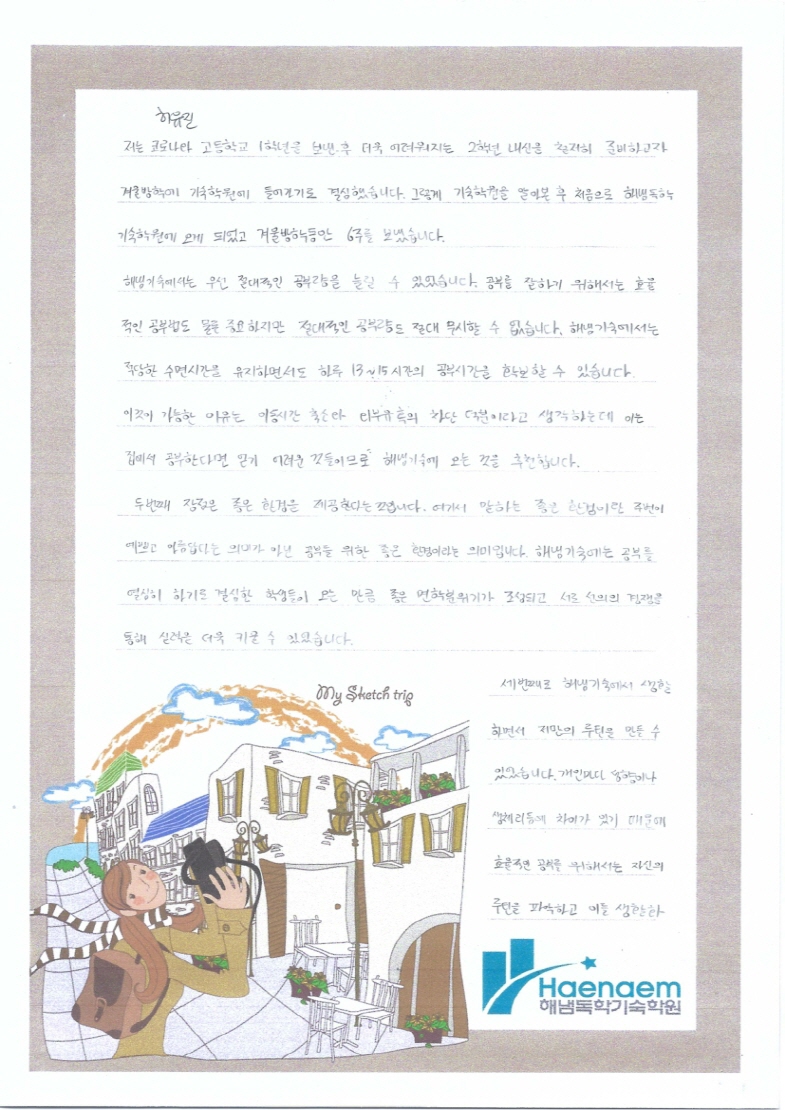 하유진
저는 코로나라 고등학교 1학년을 보낸 후 더욱 어려워지는 2학년 내신을 철저히 준비하고자
겨울방학에 기숙학원에 들어가기로 결심했습니다. 그렇게 기숙학원을 알아본 후 처음으로 해냄독학
기숙학원에 오게 되었고 겨울방학동안 6주를 보냈습니다.
해냄기숙에서는 우선 절대적인 공부량을 늘릴 수 있었습니다. 공부를 잘하기 위해서는 효율
적인 공부법도 물론 중요하지만 절대적인 공부량도 절대 무시할 수 없습니다. 해냄기숙에서는
적당한 수면시간을 유지하면서도 하루 13~15시간의 공부시간을 확보할 수 있습니다.
이것이 가능한 이유는 이동시간 축소와 외부유혹의 차단 덕분이라고 생각하는데 이는
집에서 공부한다면 얻기 어려운 것들이므로 해냄기숙에 오는 것을 추천합니다.
두번째 장점은 좋은 환경을 제공한다는 것입니다. 여기서 말하는 좋은 환경이란 주변이
예쁘고 아름답다는 의미가 아닌 공부를 위한 좋은 환경이라는 의미입니다. 해냄기숙에는 공부를
열심히 하기로 결심한 학생들이 오는 만큼 좋은 면학분위기가 조성되고 서로 선의의 경쟁을
통해 실력을 더욱 키울 수 있었습니다.
세번째로 해냄기숙에서 생활
하면서 저만의 루틴을 만들 수
있었습니다. 개인마다 성향이나
생체리듬에 차이가 있기 때문에
효율적인 공부를 위해서는 자신의
루틴을 파악하고 이를 생활화
My Sketch trip
Haenaem
해냄독학기숙학원